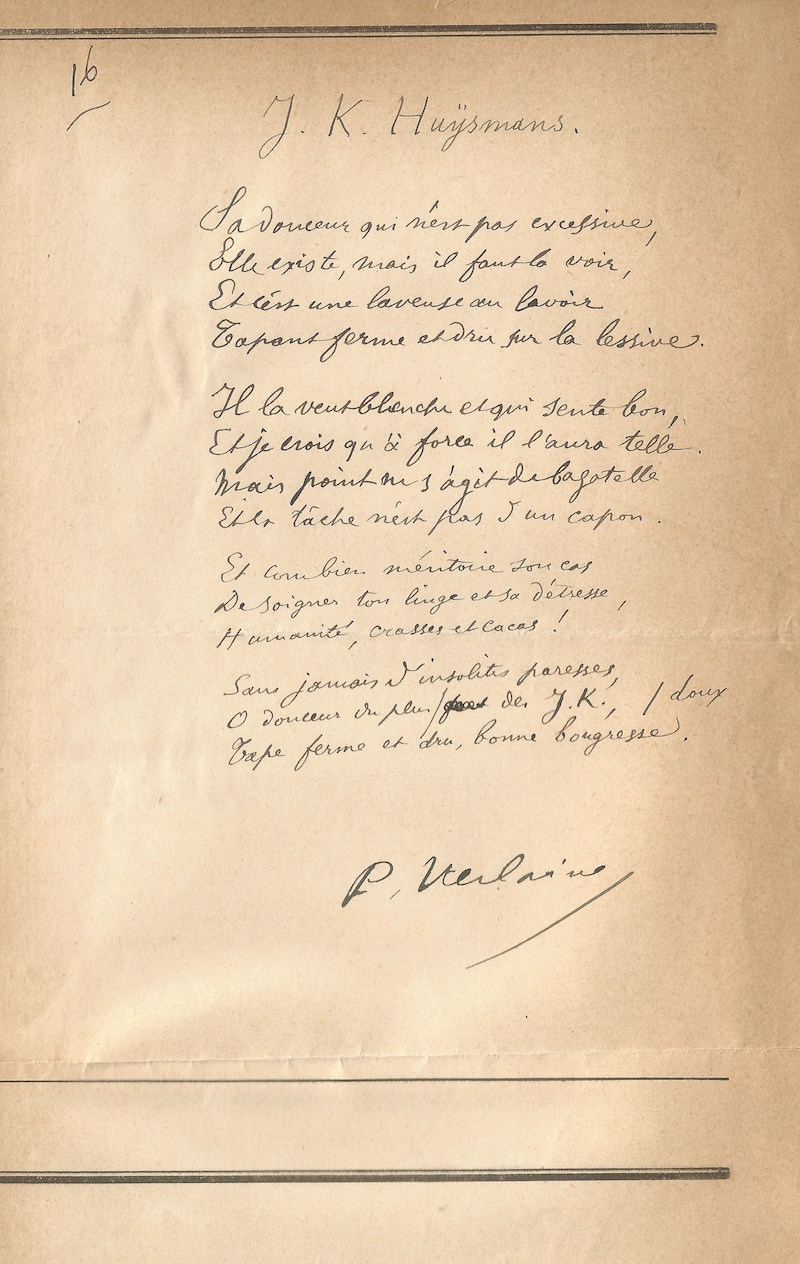 16
J. K. Huÿsmans.
Sa douceur qui n'est pas excessive,
Elle existe, mais il faut la voir,
Et c'est une laveuse au lavoir
Tapant ferme et dru sur la lessive.
Il la veut blanche et qui sente bon,
Et je crois qu'à force il l'aura telle.
Mais point ne s'agit de bagatelle
Et la tâche n'est pas d'un capon.
Et combien méritoire son cas
De soigner ton linge et sa détresse,
Humanité, crasses et cacas !
Sans jamais d'insolites paresses,
O douceur du plus / des J.K., / doux
Tape ferme et dru, bonne bougresse.
P. Verlaine